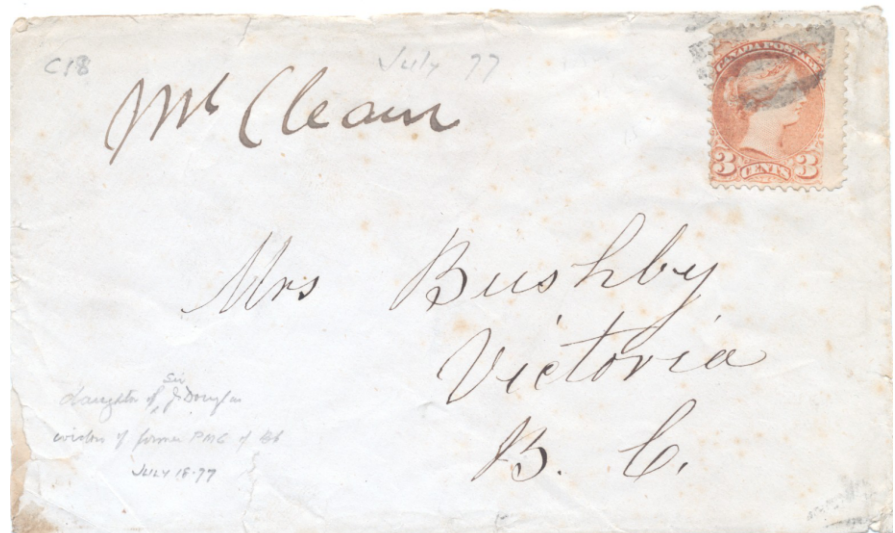 C18
July 77
McClean
CANADA POSTAGE
3 CENTS 3
Mrs Bushby
Victoria
B. C.
daughter of Sir J Douglas
widow of former PMG of
JULY 18-77